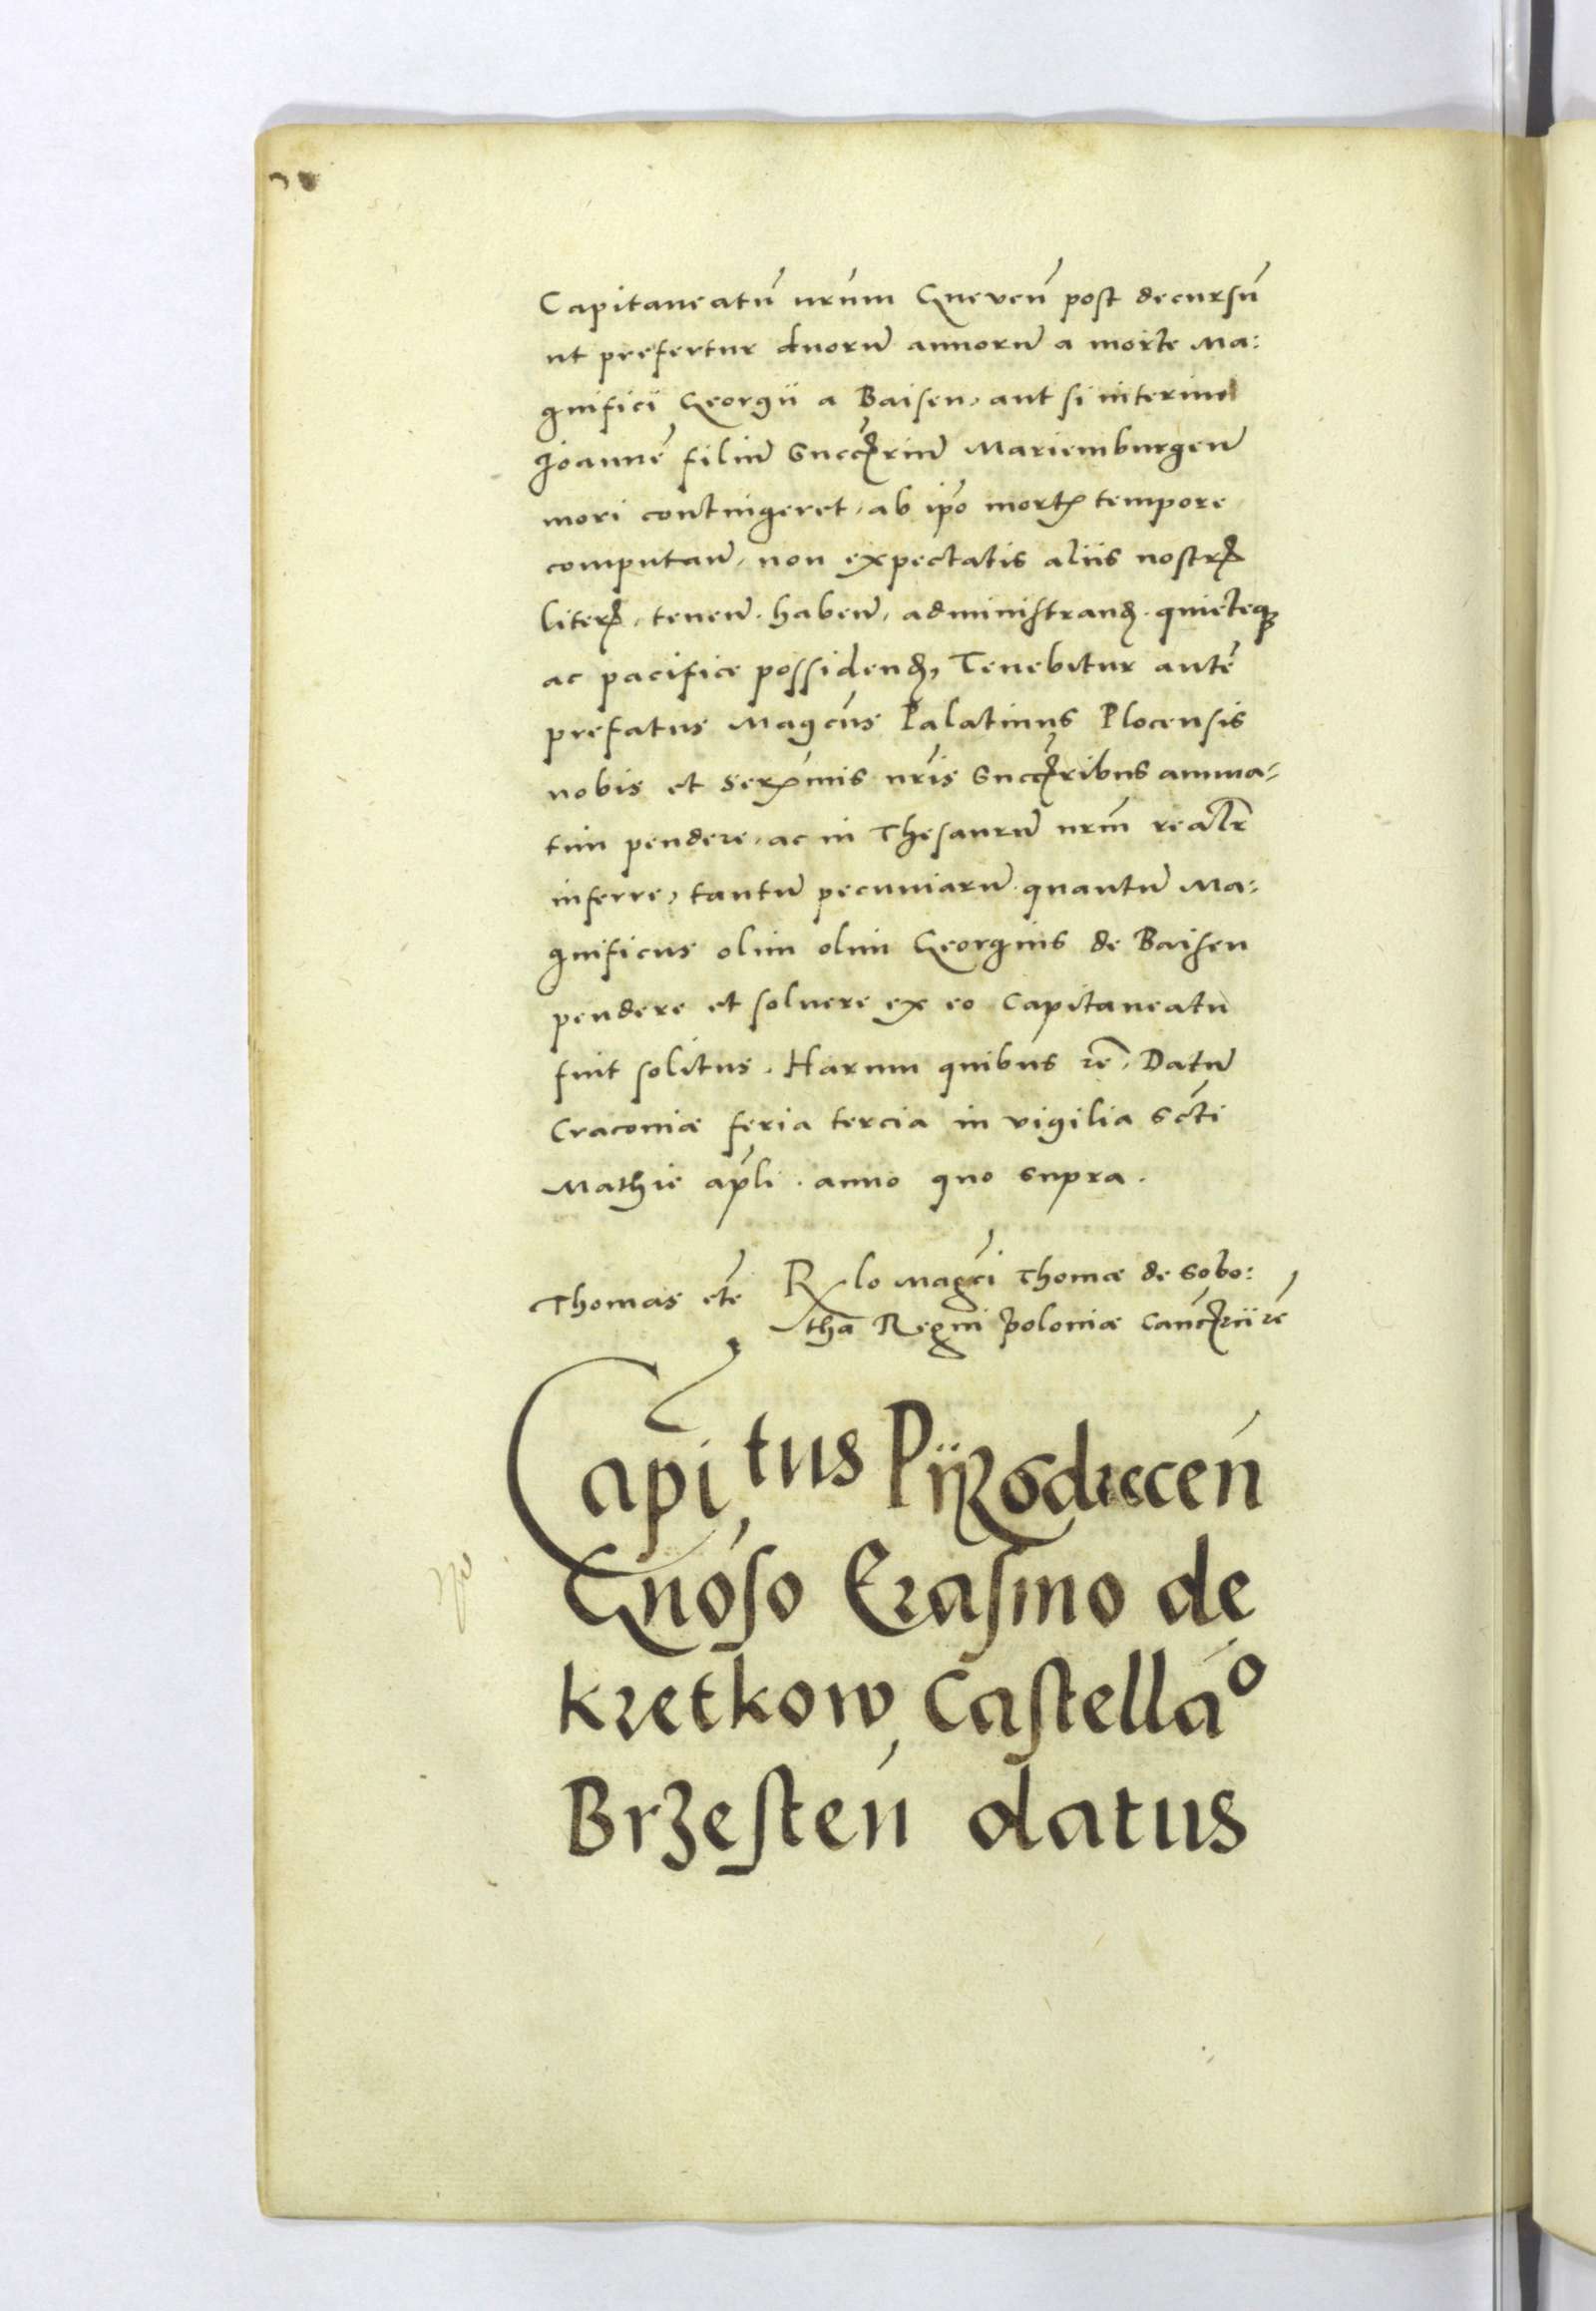 Capitaneatū nrūm Gneveñ post decursū
ut prefertur duorū annorū a morte Ma:
gnifici Georgii a Baisen, aut si interim
Joannē filiū Succrium Mariemburgeñ
mori contingeret, ab ip̄o mortis tempore
computañ, non expectatis aliis nostris
literis, teneñ. habeñ, administrand. quieteq;
ac pacifice possidend, Tenebitur autē
prefatus Magc̄us Palatinus Plocensis
nobis et Serx̄mis nr̄is Succribus annua:
tim pendere, ac in Thesaurū nrm̄ realr̄
inferre, tantū pecuniarū quantū Ma:
gnificus olim olim Georgius de Baisen
pendere et soluere ex eo Capitaneatu
fuit solitus. Harum quibus rē. Datū
Cracoviæ feria tercia in vigilia Sc̄ti
Mathie ap̄li. anno quo supra.
Thomas etc̄ Rlo Magc̄i Thomæ de Sobo:
tha Regni Poloniæ Canc̄rii rē
Capi̅tus Piizdrcceń
Gnōso Erasmo de
Kretkow Castellāo
Brzesteń datus